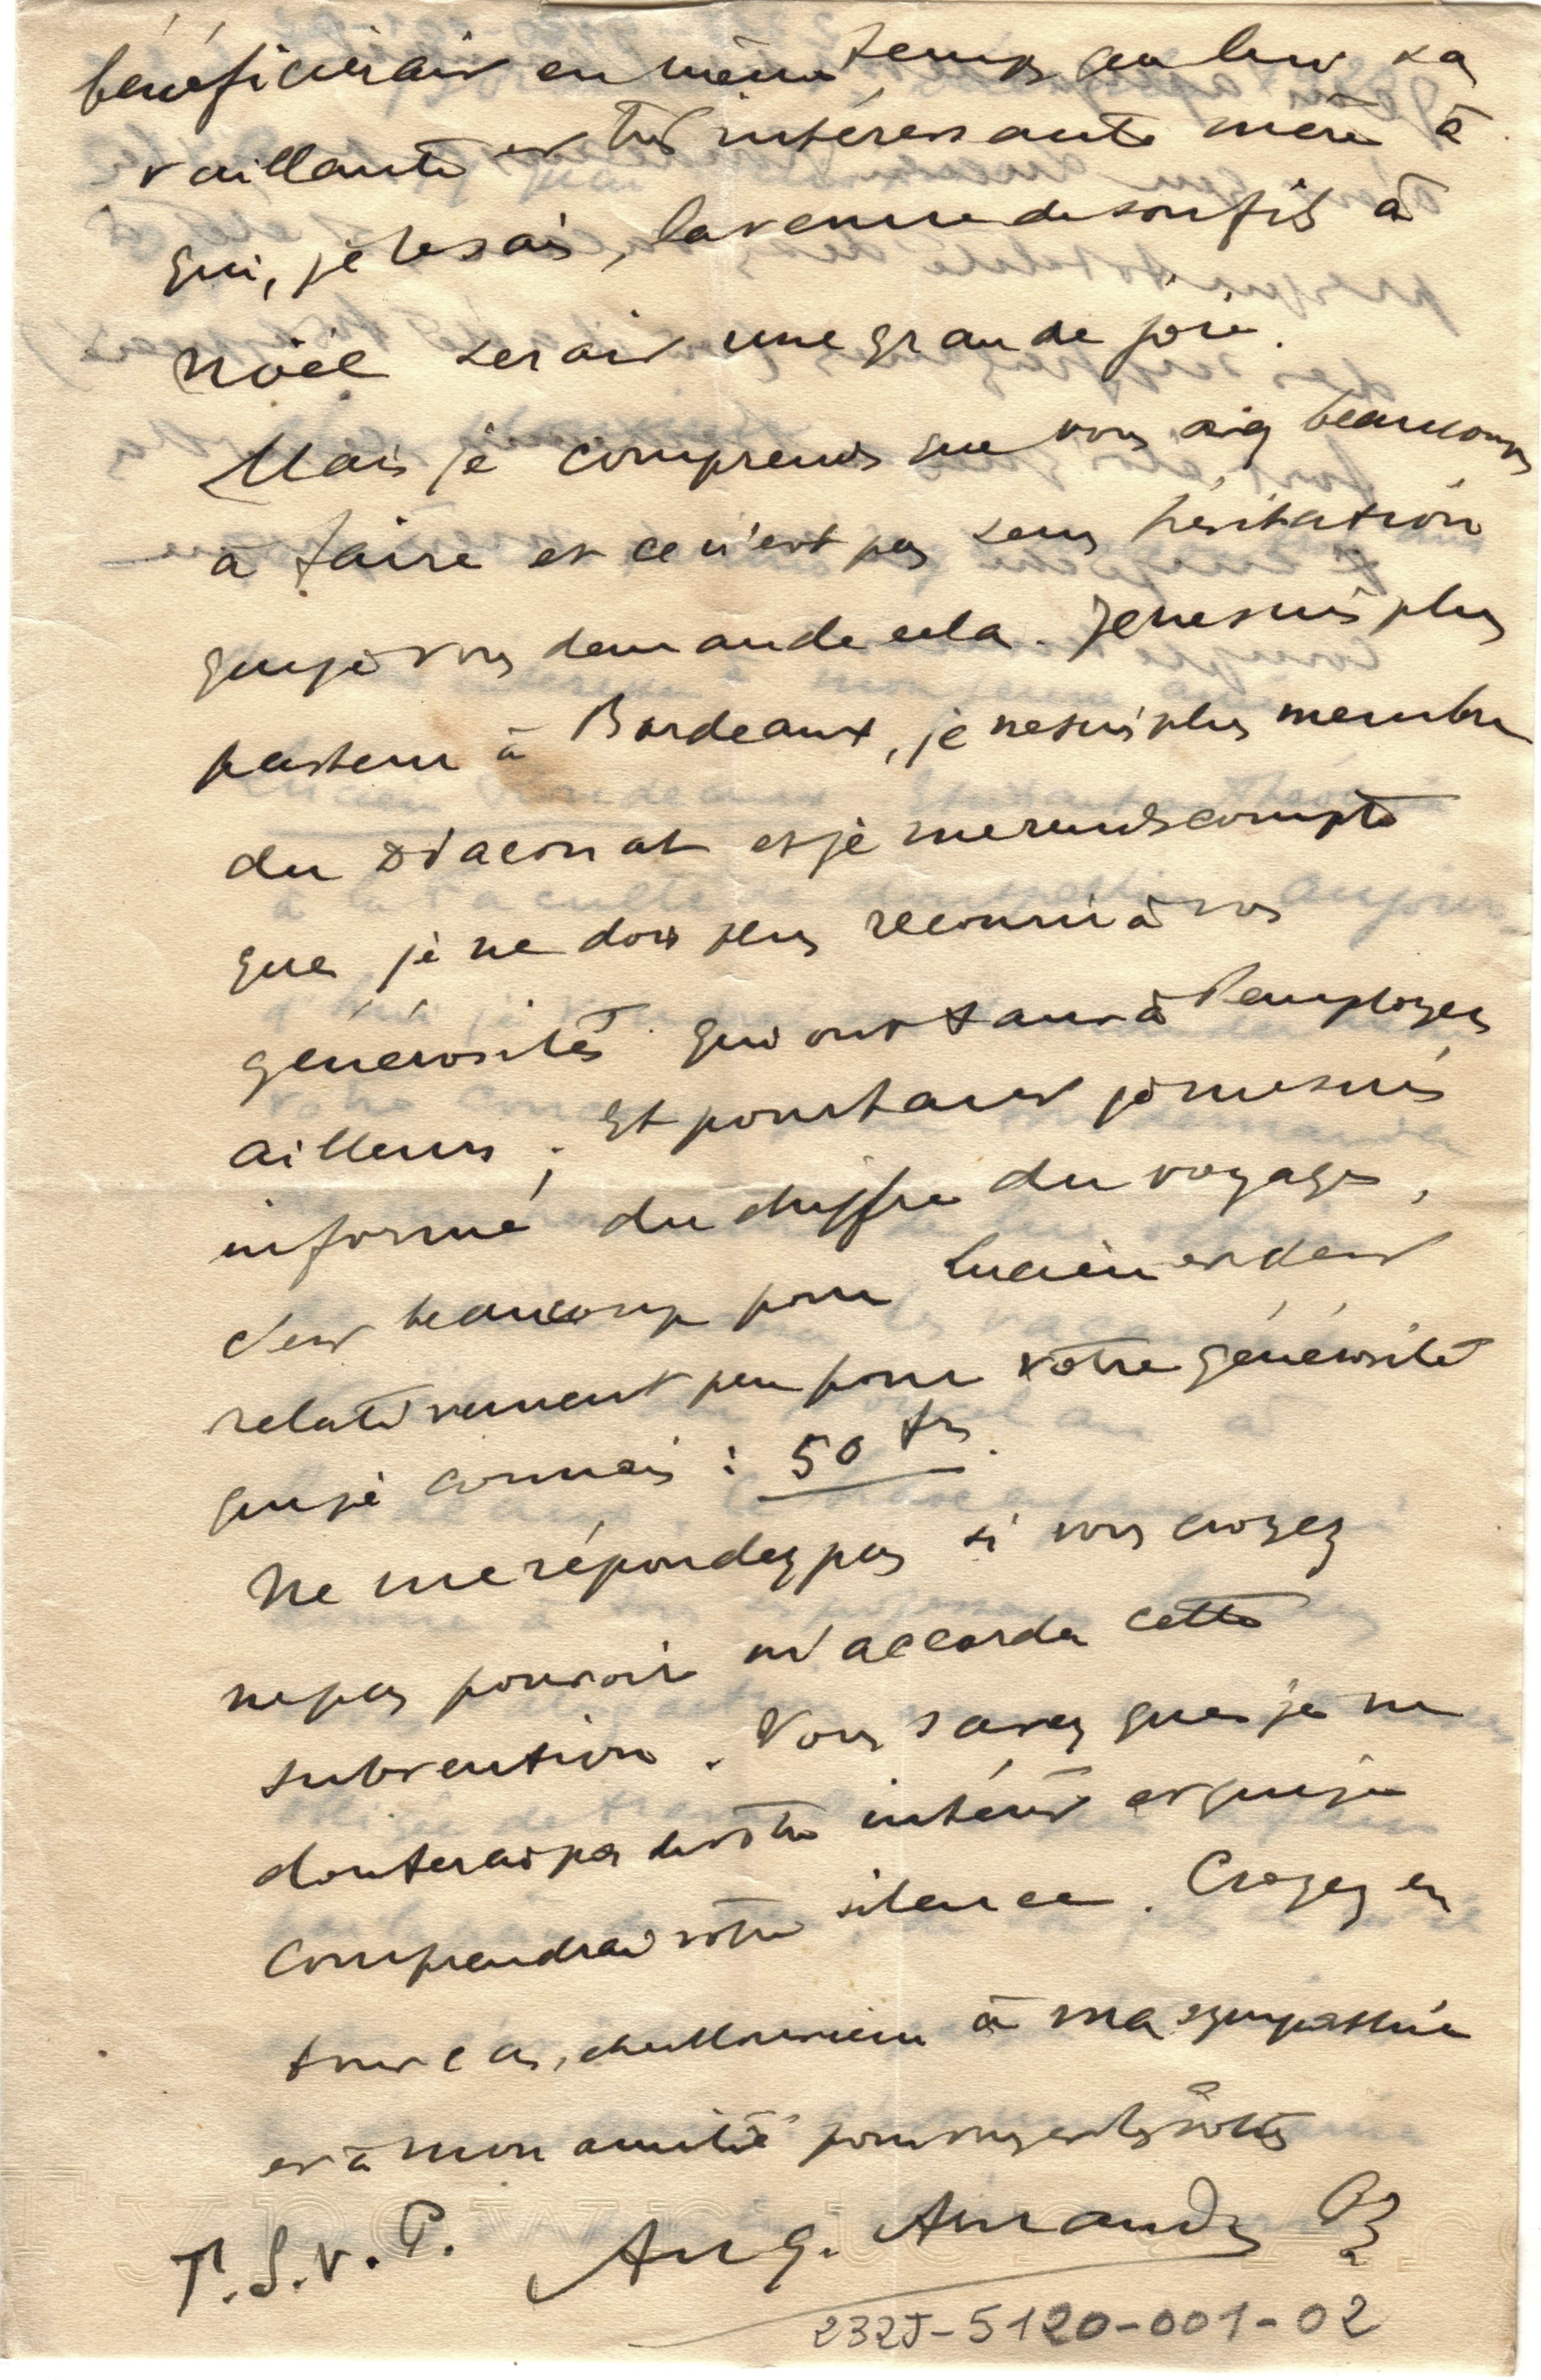 bénéficierait en même temps que lui sa
vaillante et très intéressante mère à
qui, je le sais, la venue de son fils à
Noël serait une grande joie.
Mais je comprends que vous aiez beaucoup
à faire et ce n'est pas sans hésitation
que je vous demande cela. Je ne suis plus
pasteur à Bordeaux, je ne suis plus membre
du Diaconat et je me rends compte
que je ne dois plus recourir à vos
générosités qui ont tant à s'employer
ailleurs ; Et pourtant je me suis
informé du chiffre du voyage,
c'est beaucoup pour Lucien et c'est
relativement peu pour votre générosité
que je connais : 50 frs.
Ne me répondez pas si vous croyez
ne pas pouvoir m'accorder cette
subvention. Vous savez que je ne
douterai pas de votre intérêt et que je
comprendrai votre silence. Croyez en
tout cas, cher Monsieur à ma sympathie
et à mon amitié pour vous et les vôtres
T.S.V.P. Aug.
232J-5120-001-02